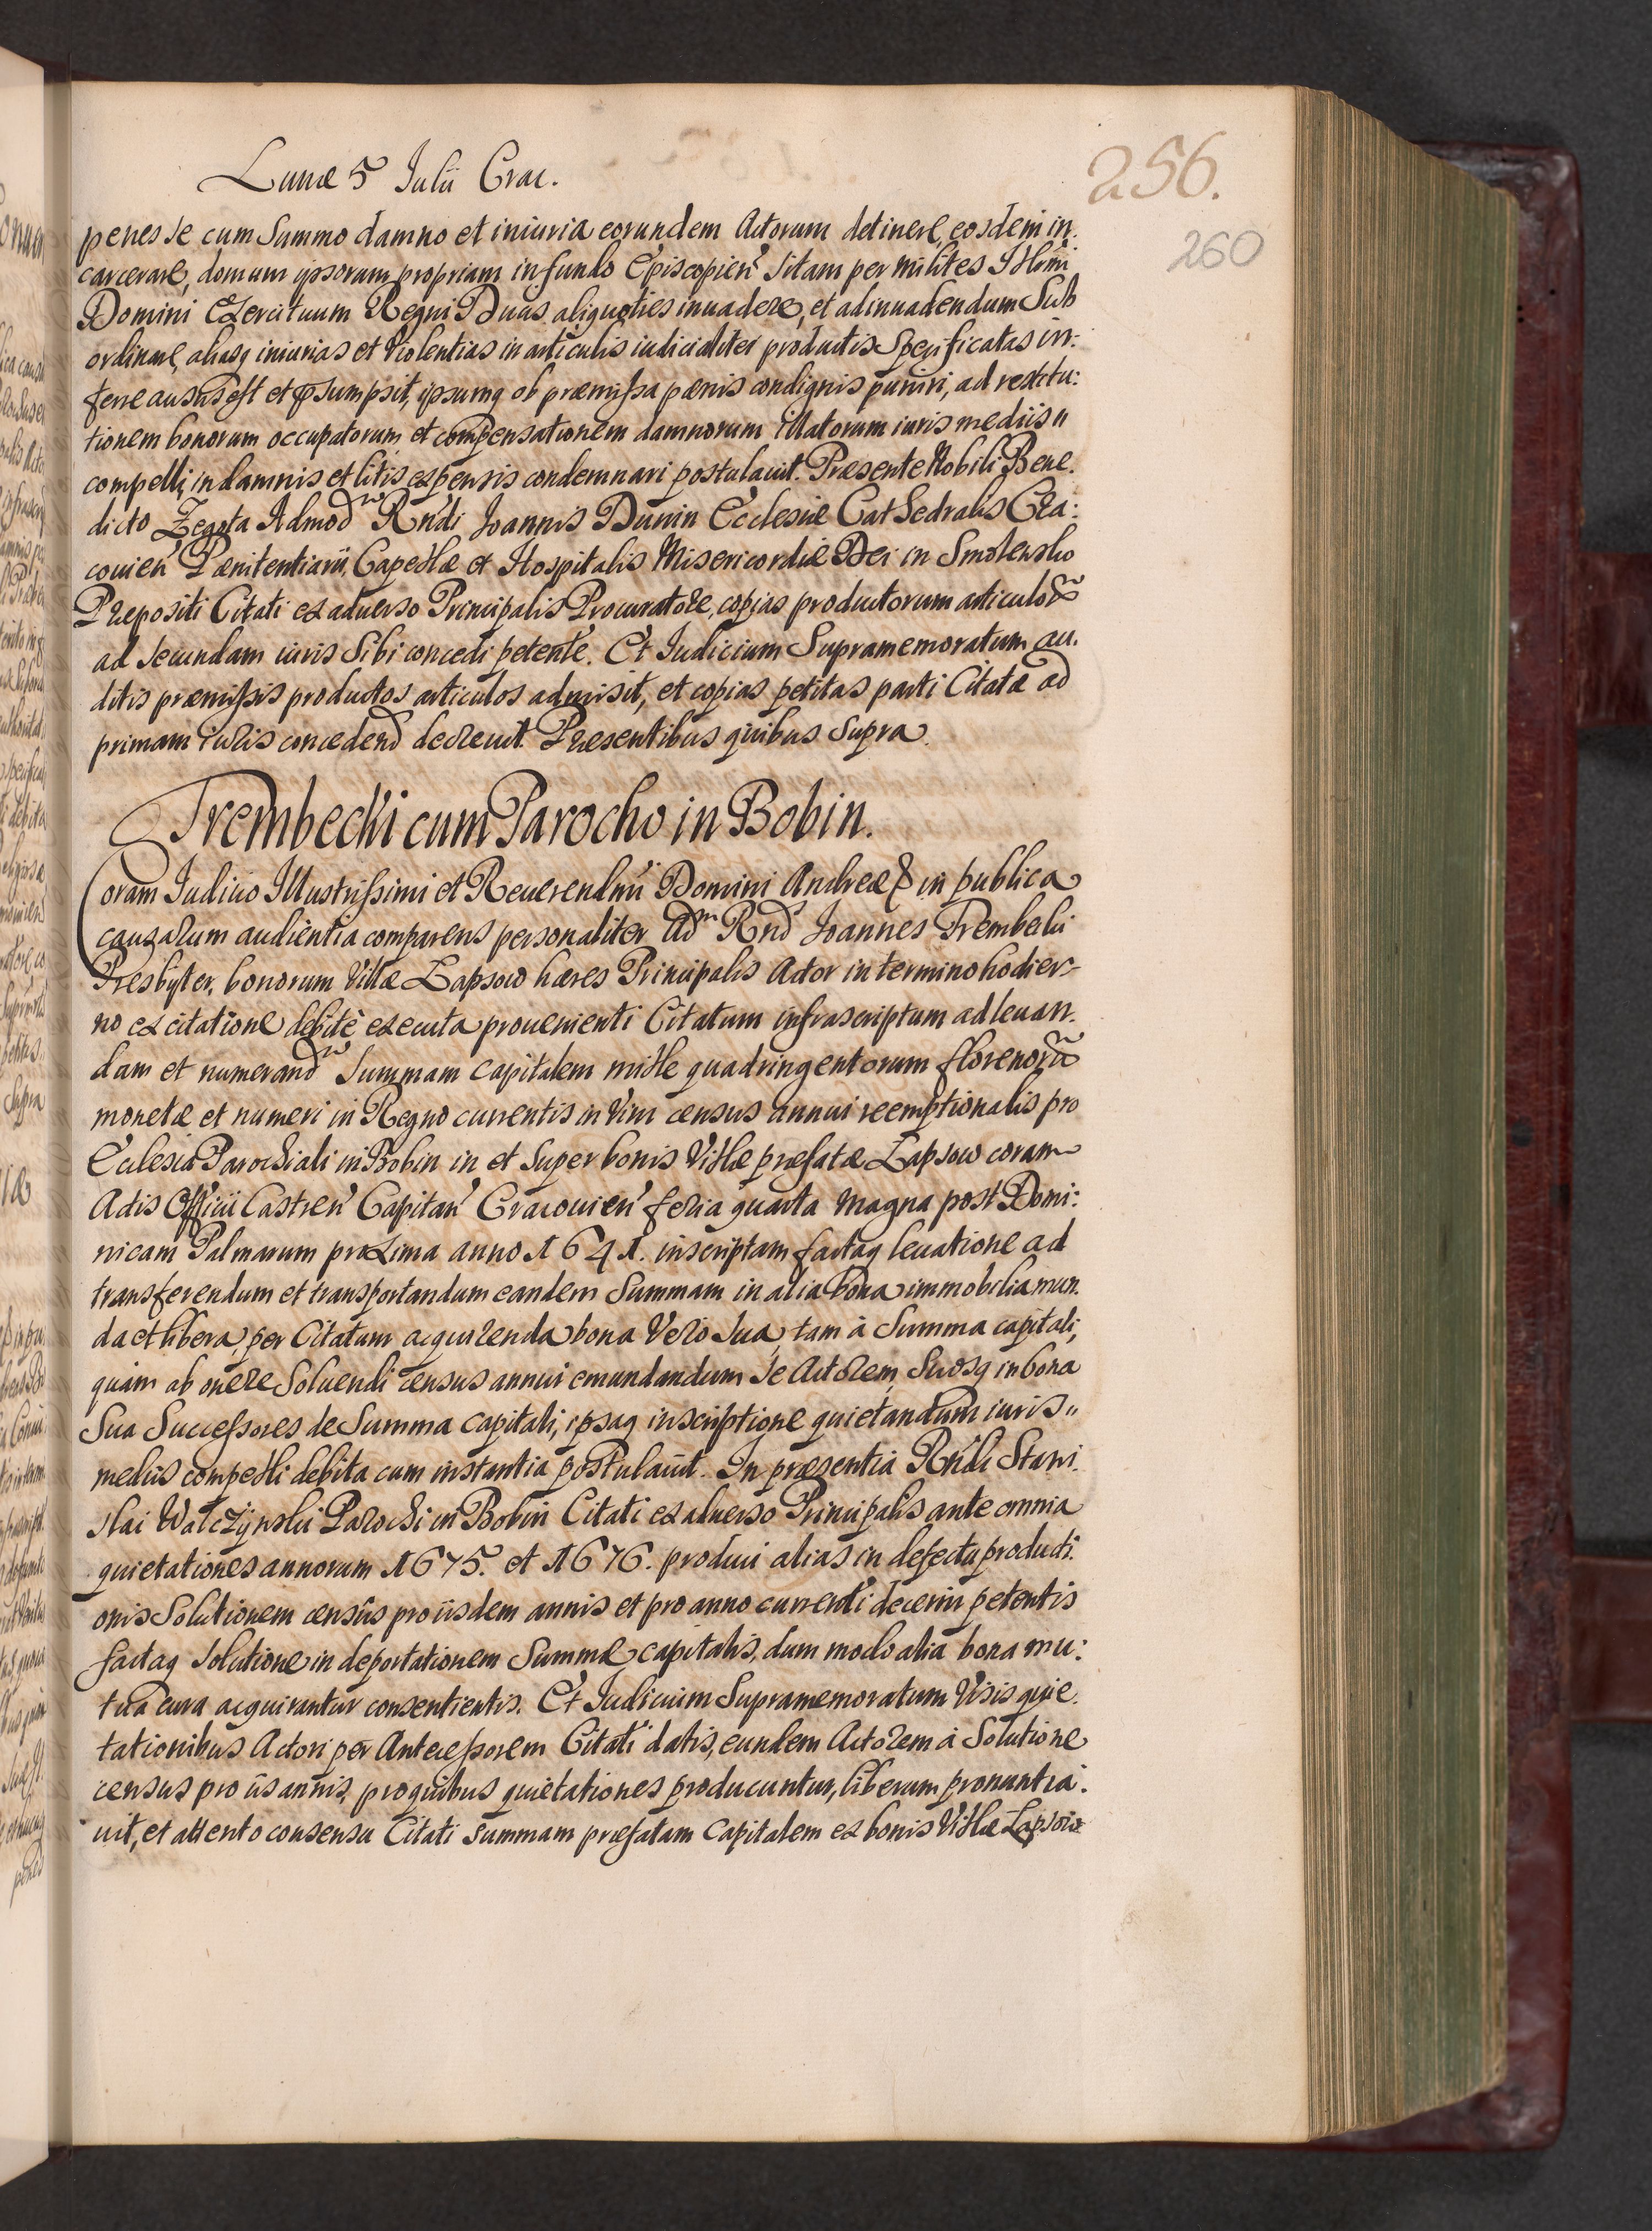 Lunæ 5 Julii Crac.
256.
260
penes se cum Summo damno et iniuria eorundem Actorum detinere, eosdem in:
carcerare, domum ipsorum propriam in fundo Episcopien̄ sitam per milites Illmi
Domini Exercituum Regni Ducis aliquoties inuadere, et ad inuadendum Sub
ordinare, aliasq iniurias et Violentias in articulis iudicialiter productis Specificatas in:
ferre ausus est et psumpsit, ipsumq ob præmissa pænis condignis puniri, ad restitu:
tionem bonorum occupatorum et compensationem damnorum illatorum iuris mediis
compelli, in damnis et litis expensis condemnari postulauit. Præsente Nobili Bene.
dicto Zegota Admod Rndi Joannis Dunin Ecclesiæ Cathedralis Cra:
couien Pænitentiarii, Capellæ et Hospitalis Misericordiæ Dei in Smolensko
Præpositi Citati ex aduerso Principalis Procuratore, copias productorum articulor
ad secundam iuris Sibi concedi petente. Et Judicium Supramemoratum au.
ditis præmissis productos articulos admisit, et copias petitas parti Citatæ ad
primam iuris concedend decreuit. Præsentibus quibus Supra.
Trembecki cum Parocho in Bobin.
Coram Judicio Illustrissimi et Reuerendmi Domini Andreæ & in publica
causarum audientia comparens personaliter Adm Rnd Joannes Trembecki
Presbyter, bonorum Villæ Łapsow hæres Principalis Actor in termino hodier-
no ex citatione debitè executa prouenienti Citatum infrascriptum ad leuan.
dam et numerand Summam capitalem mille quadringentorum florenorū
monetæ et numeri in Regno currentis in Vim census annui reemptionalis pro
Ecclesia Parochiali in Bobin in et Super bonis Villæ præfatæ Łapsow coram
Actis Officii Castren Capitan Cracouien feria quarta magna post Domi:
nicam Palmarum proxima anno 1641. inscriptam factaq leuatione ad
transferendum et transportandum eandem Summam in alia bona immobilia mun.
da et libera, per Citatum acquirenda bona Vero sua, tam à Summa capitali,
quàm ab onere Soluendi census annui emundandum se Actorem, Suosq in bona
Sua Successores de Summa capitali, ipsaq inscriptione quietandum iuris
mediis compelli debita cum instantia postulauit. In præsentia Rndi Stani.
slai Walczÿnski Parochi in Bobin Citati ex aduerso Principalis ante omnia
quietationes annorum 1675. et 1676. produci alias in defectu producti.
onis Solutionem censûs pro iisdem annis et pro anno currenti decerni petentis
factaq solutione in deportationem Summæ capitalis, dum modo alia bona mu:
tua cura acquirantur consentientis. Et Judicium Supramemoratum Visis quie.
tationibus Actori per Antecessorem Citati datis, eundem Actorem à Solutione
census pro iis annis, pro quibus quietationes producuntur, liberum pronuntia.
uit, et attento consensu Citati summam præfatam capitalem ex bonis Villæ Łapsow